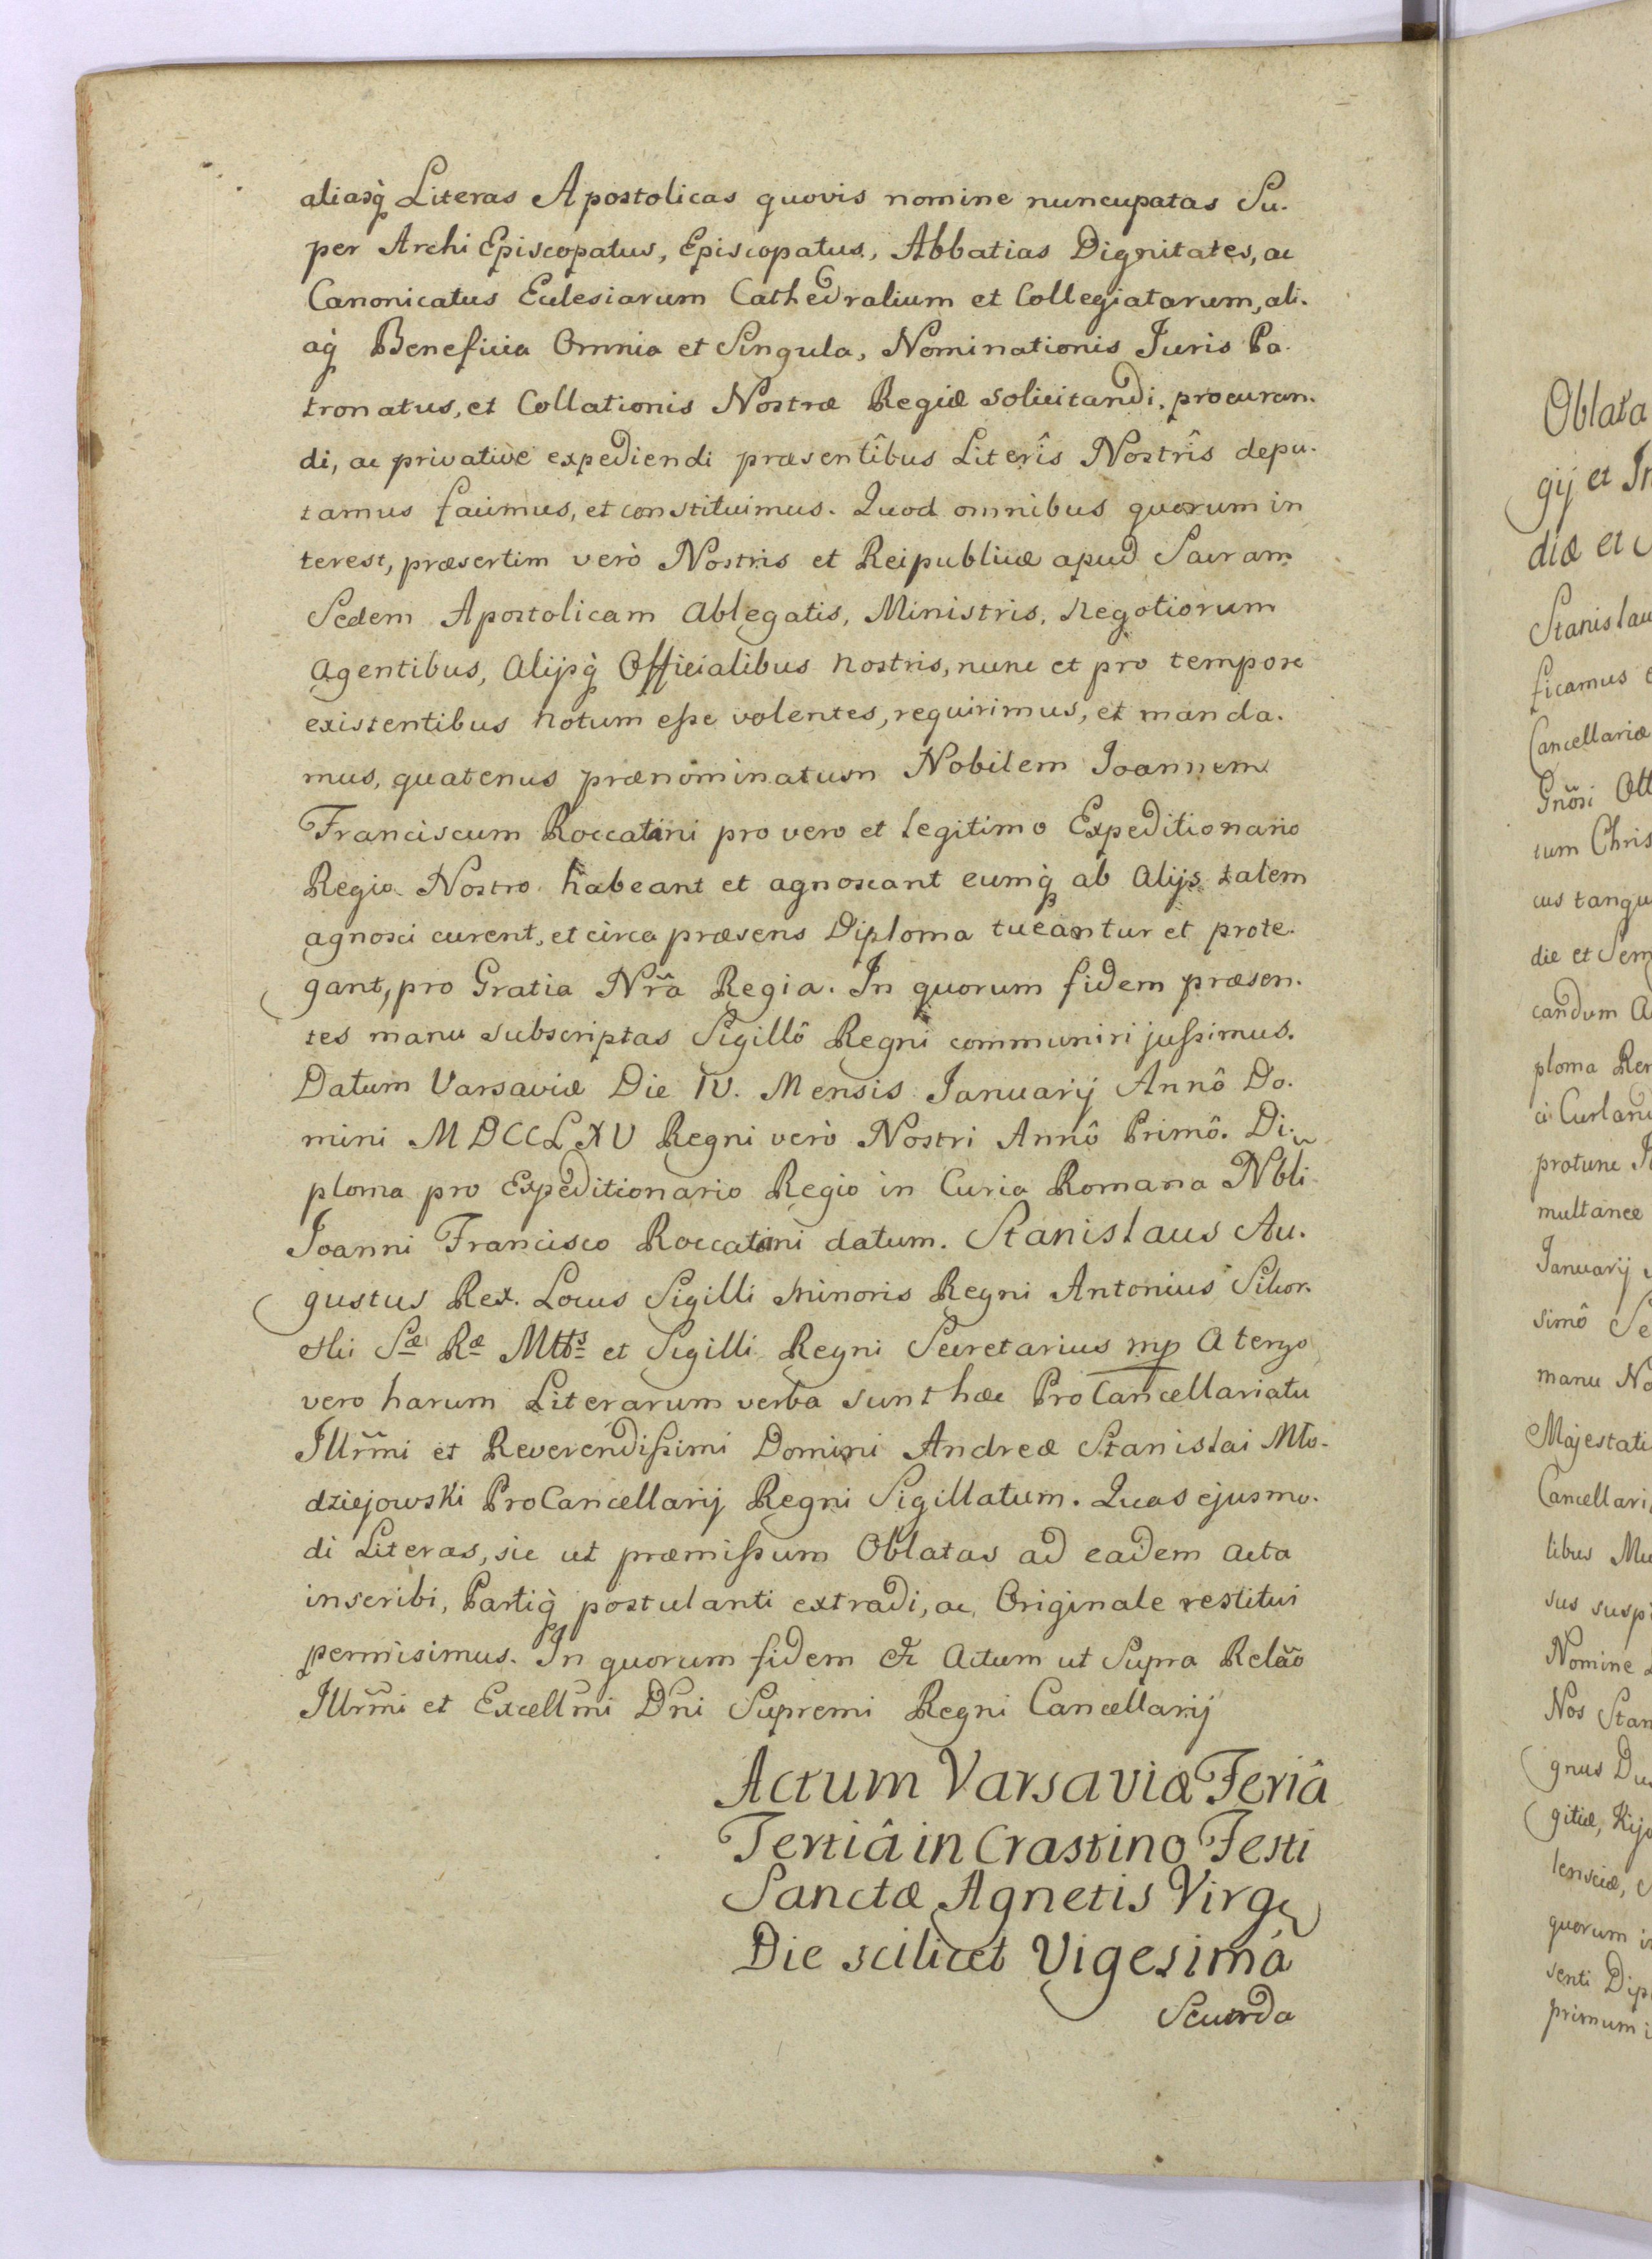 aliasq̀ Literas Apostolicas quovis nomine nuncupatas Su-
per Archi Episcopatus, Episcopatus, Abbatias Dignitates, ac
Canonicatus Ecclesiarum Cathedralium et Collegiatarum, ali-
aq̀ Beneficia Omnia et Singula, Nominationis Juris Pa-
tronatus, et Collationis Nostræ Regiæ solicitandi, procuran-
di, ac privativè expediendi præsentîbus Literîs Nostrîs depu-
tamus facimus, et constituimus. Quod omnibus quorum in
terest, præsertim verò Nostris et Reipublicæ apud Sacram
Sedem Apostolicam Ablegatis, Ministris, Negotiorum
Agentibus, Alijsq̀ Officialibus Nostris, nunc et pro tempore
existentibus notum eſse volentes, requirimus, et manda-
mus, quatenus prænominatum Nobilem Joannem
Franciscum Roccatani pro vero et legitimo Expeditionario
Regio Nostro habeant et agnoscant eumq̀ ab Alijs talem
agnosci curent, et circa præsens Diploma tueantur et prote-
gant, pro Gratia Nr̃a Regia. In quorum fidem præsen-
tes manu subscriptas Sigillô Regni communiri juſsimus.
Datum Varsaviæ Die IV. Mensis Januarij Annô Do-
mini MDCCLXV Regni verò Nostri Annô Primô. Di-
ploma pro Expeditionario Regio in Curia Romana Nb̃li
Joanni Francisco Roccatani datum. Stanislaus Au-
gustus Rex. Locus Sigilli Minoris Regni Antonius Sikor-
ski Sæ Ræ Mttis et Sigilli Regni Secretarius mp A tergo
vero harum Literarum verba sunt hæc ProCancellariatu
Illr̃mi et Reverendiſsimi Domini Andreæ Stanislai Mło-
dziejowski ProCancellarij Regni Sigillatum. Quas ejusmo-
di Literas, sic ut præmiſsum Oblatas ad eadem Acta
inscribi, Partiq̀ postulanti extradi, ac Originale restitui
permisimus. In quorum fidem &c Actum ut Supra Relão
Illr̃mi et Excell̃mi Dñi Supremi Regni Cancellarij
Actum Varsaviæ Feriâ
Tertiâ in Crastino Festi
Sanctæ Agnetis Virg
Die scilicet Vigesimâ
Secunda
Oblata
gij et In
diæ et
Stanislau
ficamus
Cancellariæ
Gñosi Ott
tum Chris
cus tangu
die et Sem
candum A
ploma Re
ci Curlan
protunc J
multanee
Januarij
simô Se
manu No
Majestati
Cancellari
libus Mu
sus susp
Nomine
Nos Stan
gnus Du
gitiæ, Kijo
lensciæ,
quorum i
senti Dip
primum i